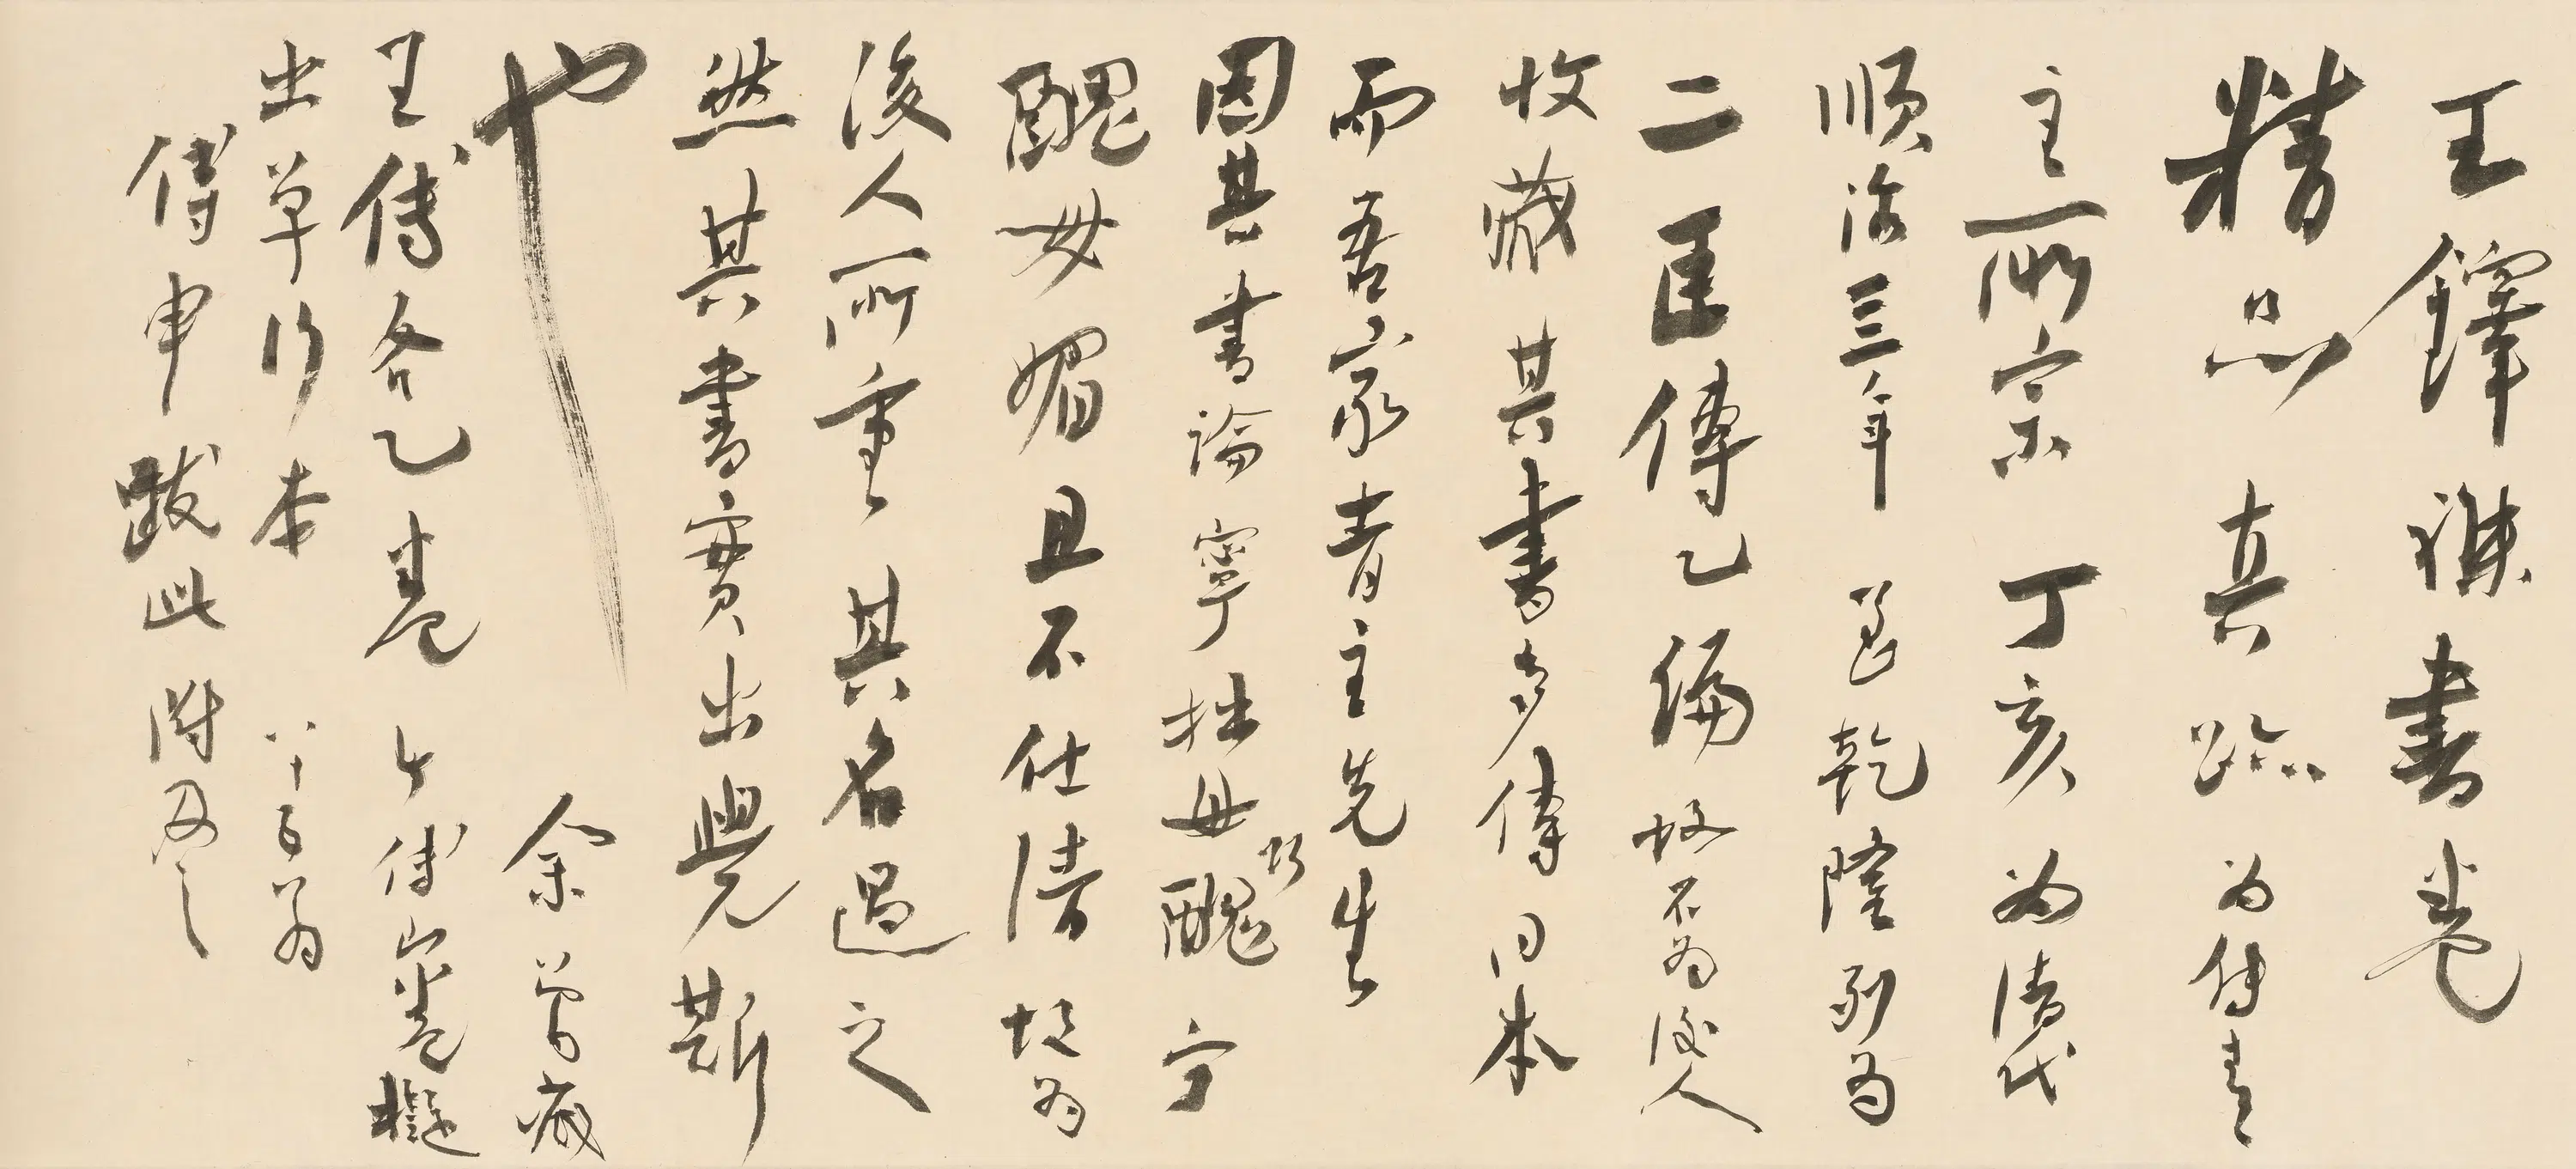 王鐸雜書卷
精品真跡為傅青
主所宗丁亥為清代
順治三年 乾隆列為
二臣傳乙編故不為後人
收藏其書多傳日本
而吾家青主先生
因其書論寧拙毋巧醜寧
醜毋媚且不仕清故為
後人所重其名過之
然其書實出覺斯
也 余曾藏
王傅各乙卷今傅山卷擬
出草行本 八十五翁
傅申跋此時又及